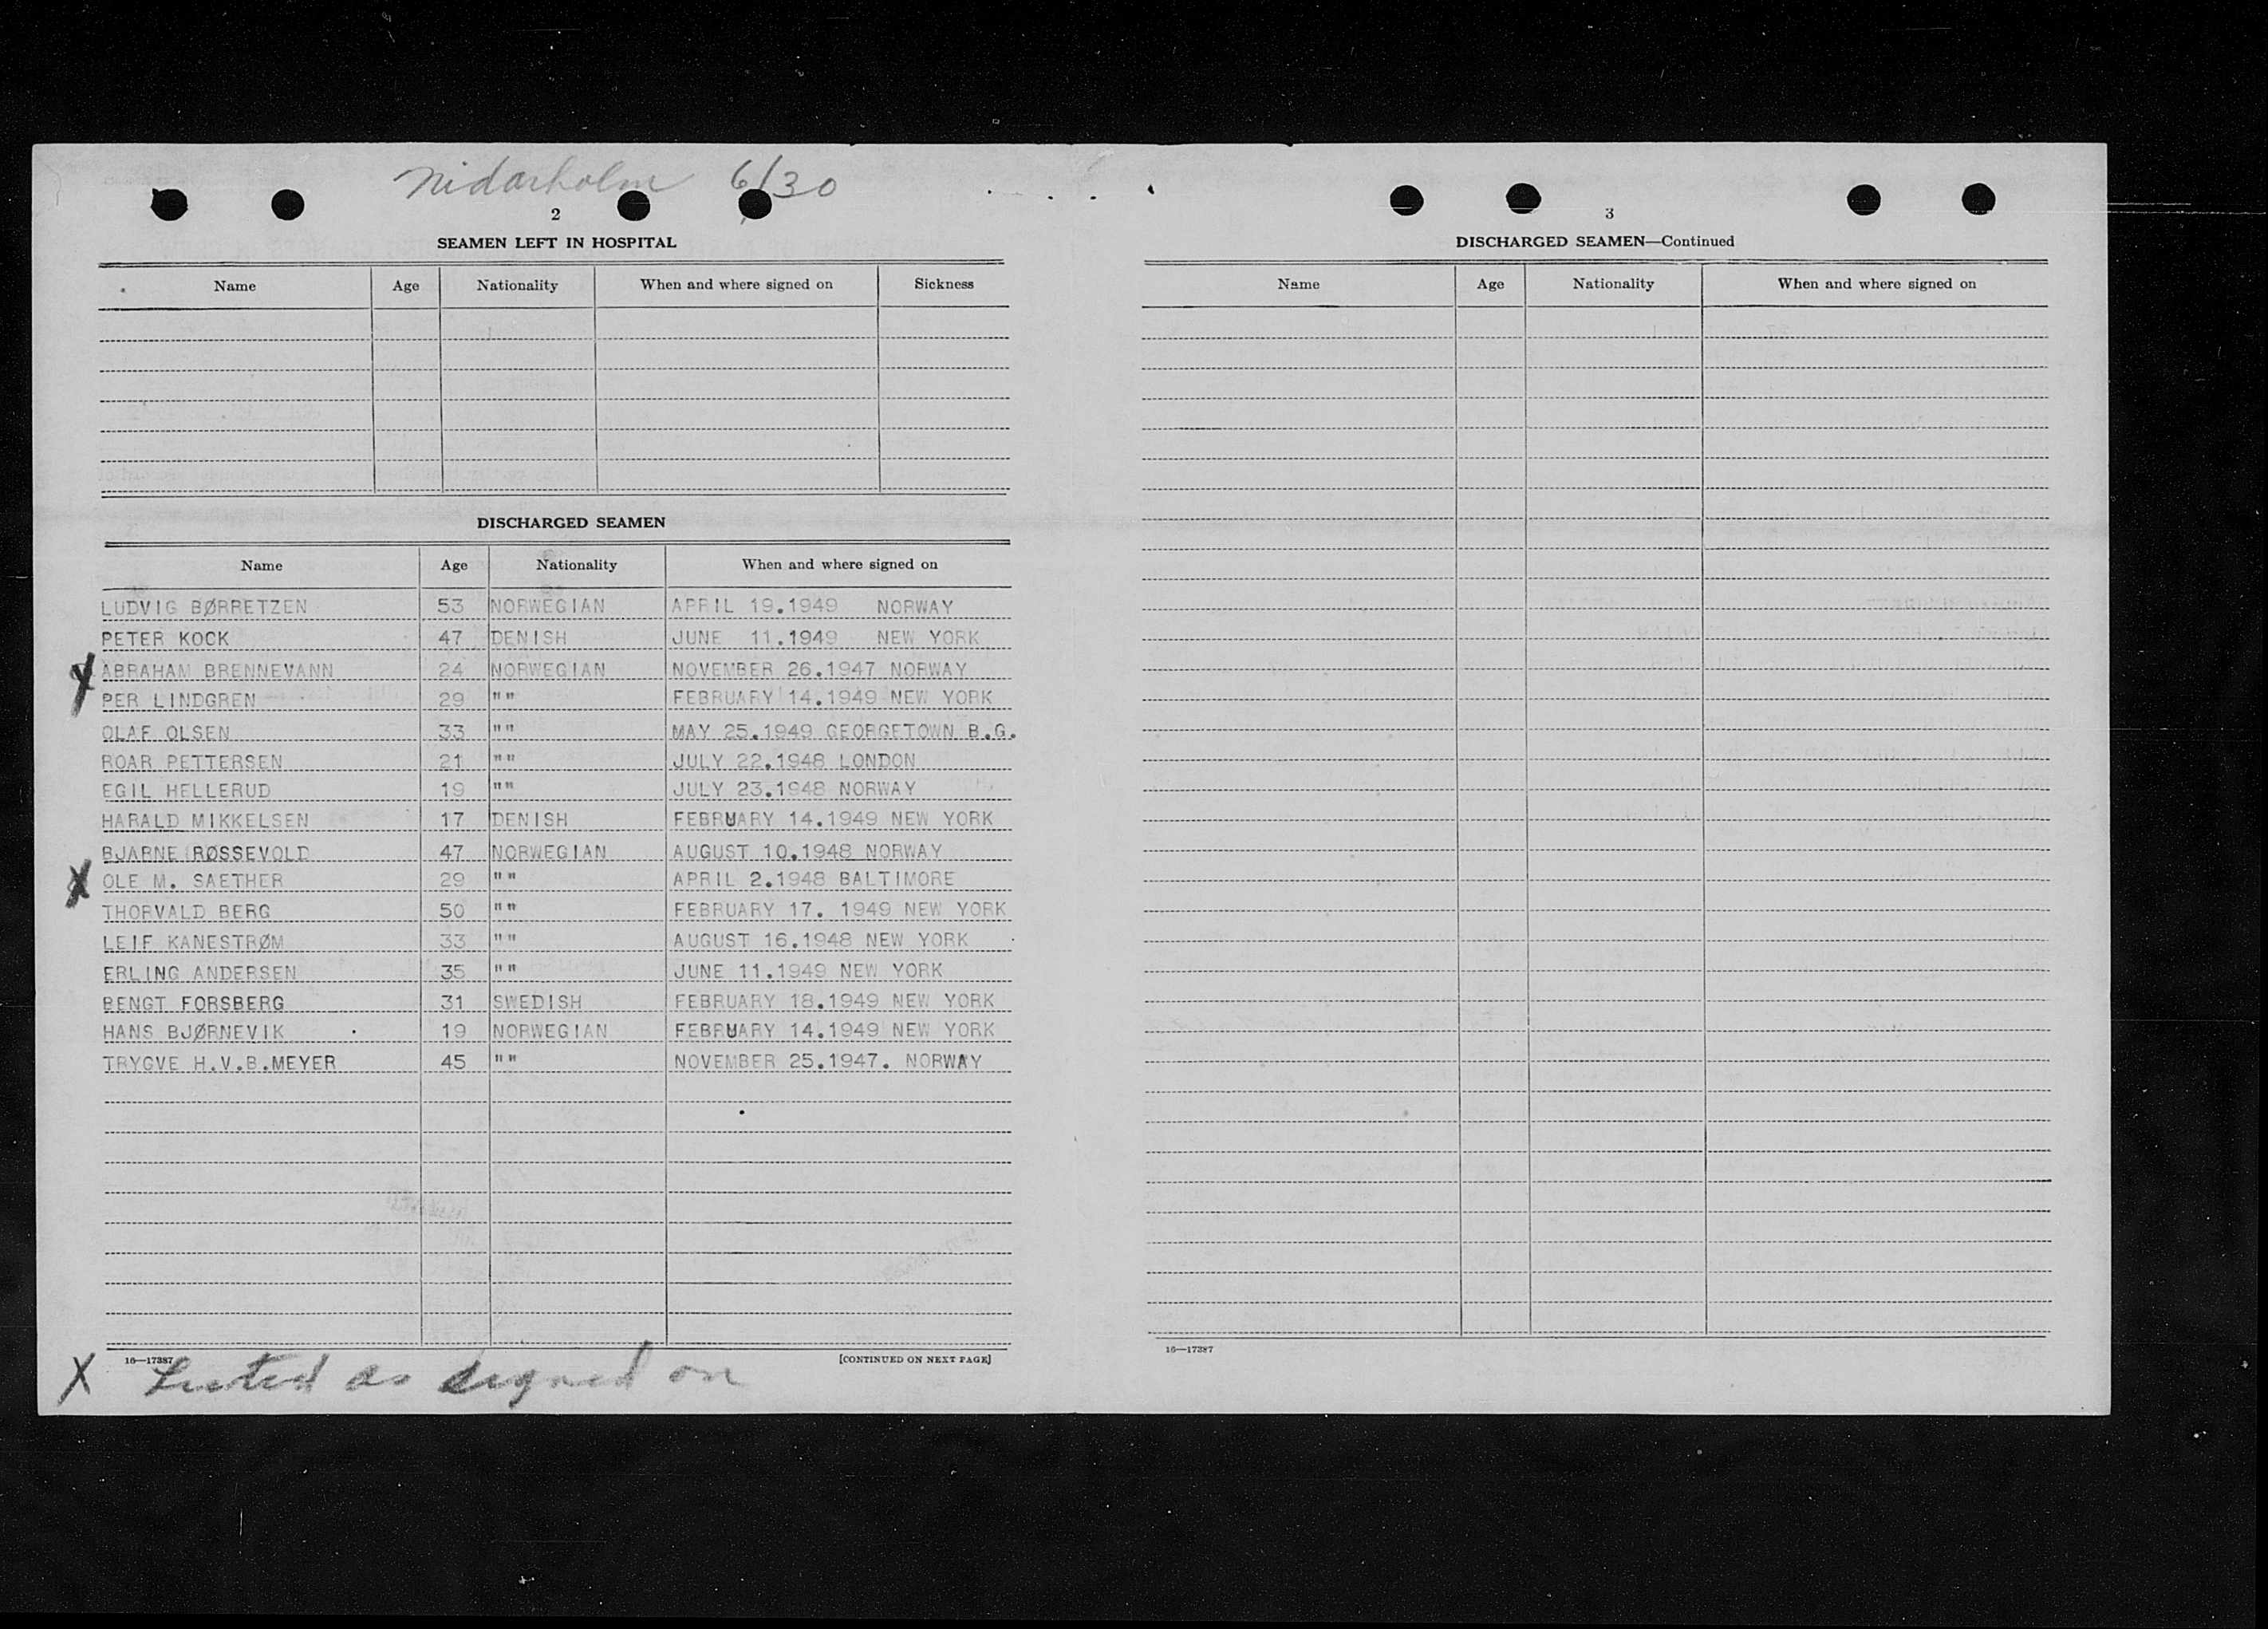 Nidarholm 6/30
2
SEAMEN LEFT IN HOSPITAL
Name Age Nationality When and where signed on Sickness
DISCHARGED SEAMEN
Name Age Nationality When and where signed on
LUDVIG BØRRETZEN 53 NORWEGIAN APRIL 19.1949 NORWAY
PETER KOCK 47 DENISH JUNE 11.1949 NEW YORK
X ABRAHAM BRENNEVANN 24 NORWEGIAN NOVEMBER 26.1947 NORWAY
PER LINDGREN 29 "" FEBRUARY 14.1949 NEW YORK
OLAF OLSEN 33 "" MAY 25.1949 GEORGETOWN B.G.
ROAR PETTERSEN 21 "" JULY 22.1948 LONDON
EGIL HELLERUD 19 "" JULY 23.1948 NORWAY
HARALD MIKKELSEN 17 DENISH FEBRUARY 14.1949 NEW YORK
BJARNE RØSSEVOLD 47 NORWEGIAN AUGUST 10.1948 NORWAY
X OLE M. SAETHER 29 "" APRIL 2.1948 BALTIMORE
THORVALD BERG 50 "" FEBRUARY 17. 1949 NEW YORK
LEIF KANESTRØM 33 "" AUGUST 16.1948 NEW YORK
ERLING ANDERSEN 35 "" JUNE 11.1949 NEW YORK
BENGT FORSBERG 31 SWEDISH FEBRUARY 18.1949 NEW YORK
HANS BJØRNEVIK 19 NORWEGIAN FEBRUARY 14.1949 NEW YORK
TRYGVE H.V.B.MEYER 45 "" NOVEMBER 25.1947. NORWAY
16—17387 [CONTINUED ON NEXT PAGE]
X Listed as signed on
3
DISCHARGED SEAMEN—Continued
Name Age Nationality When and where signed on
16—17387